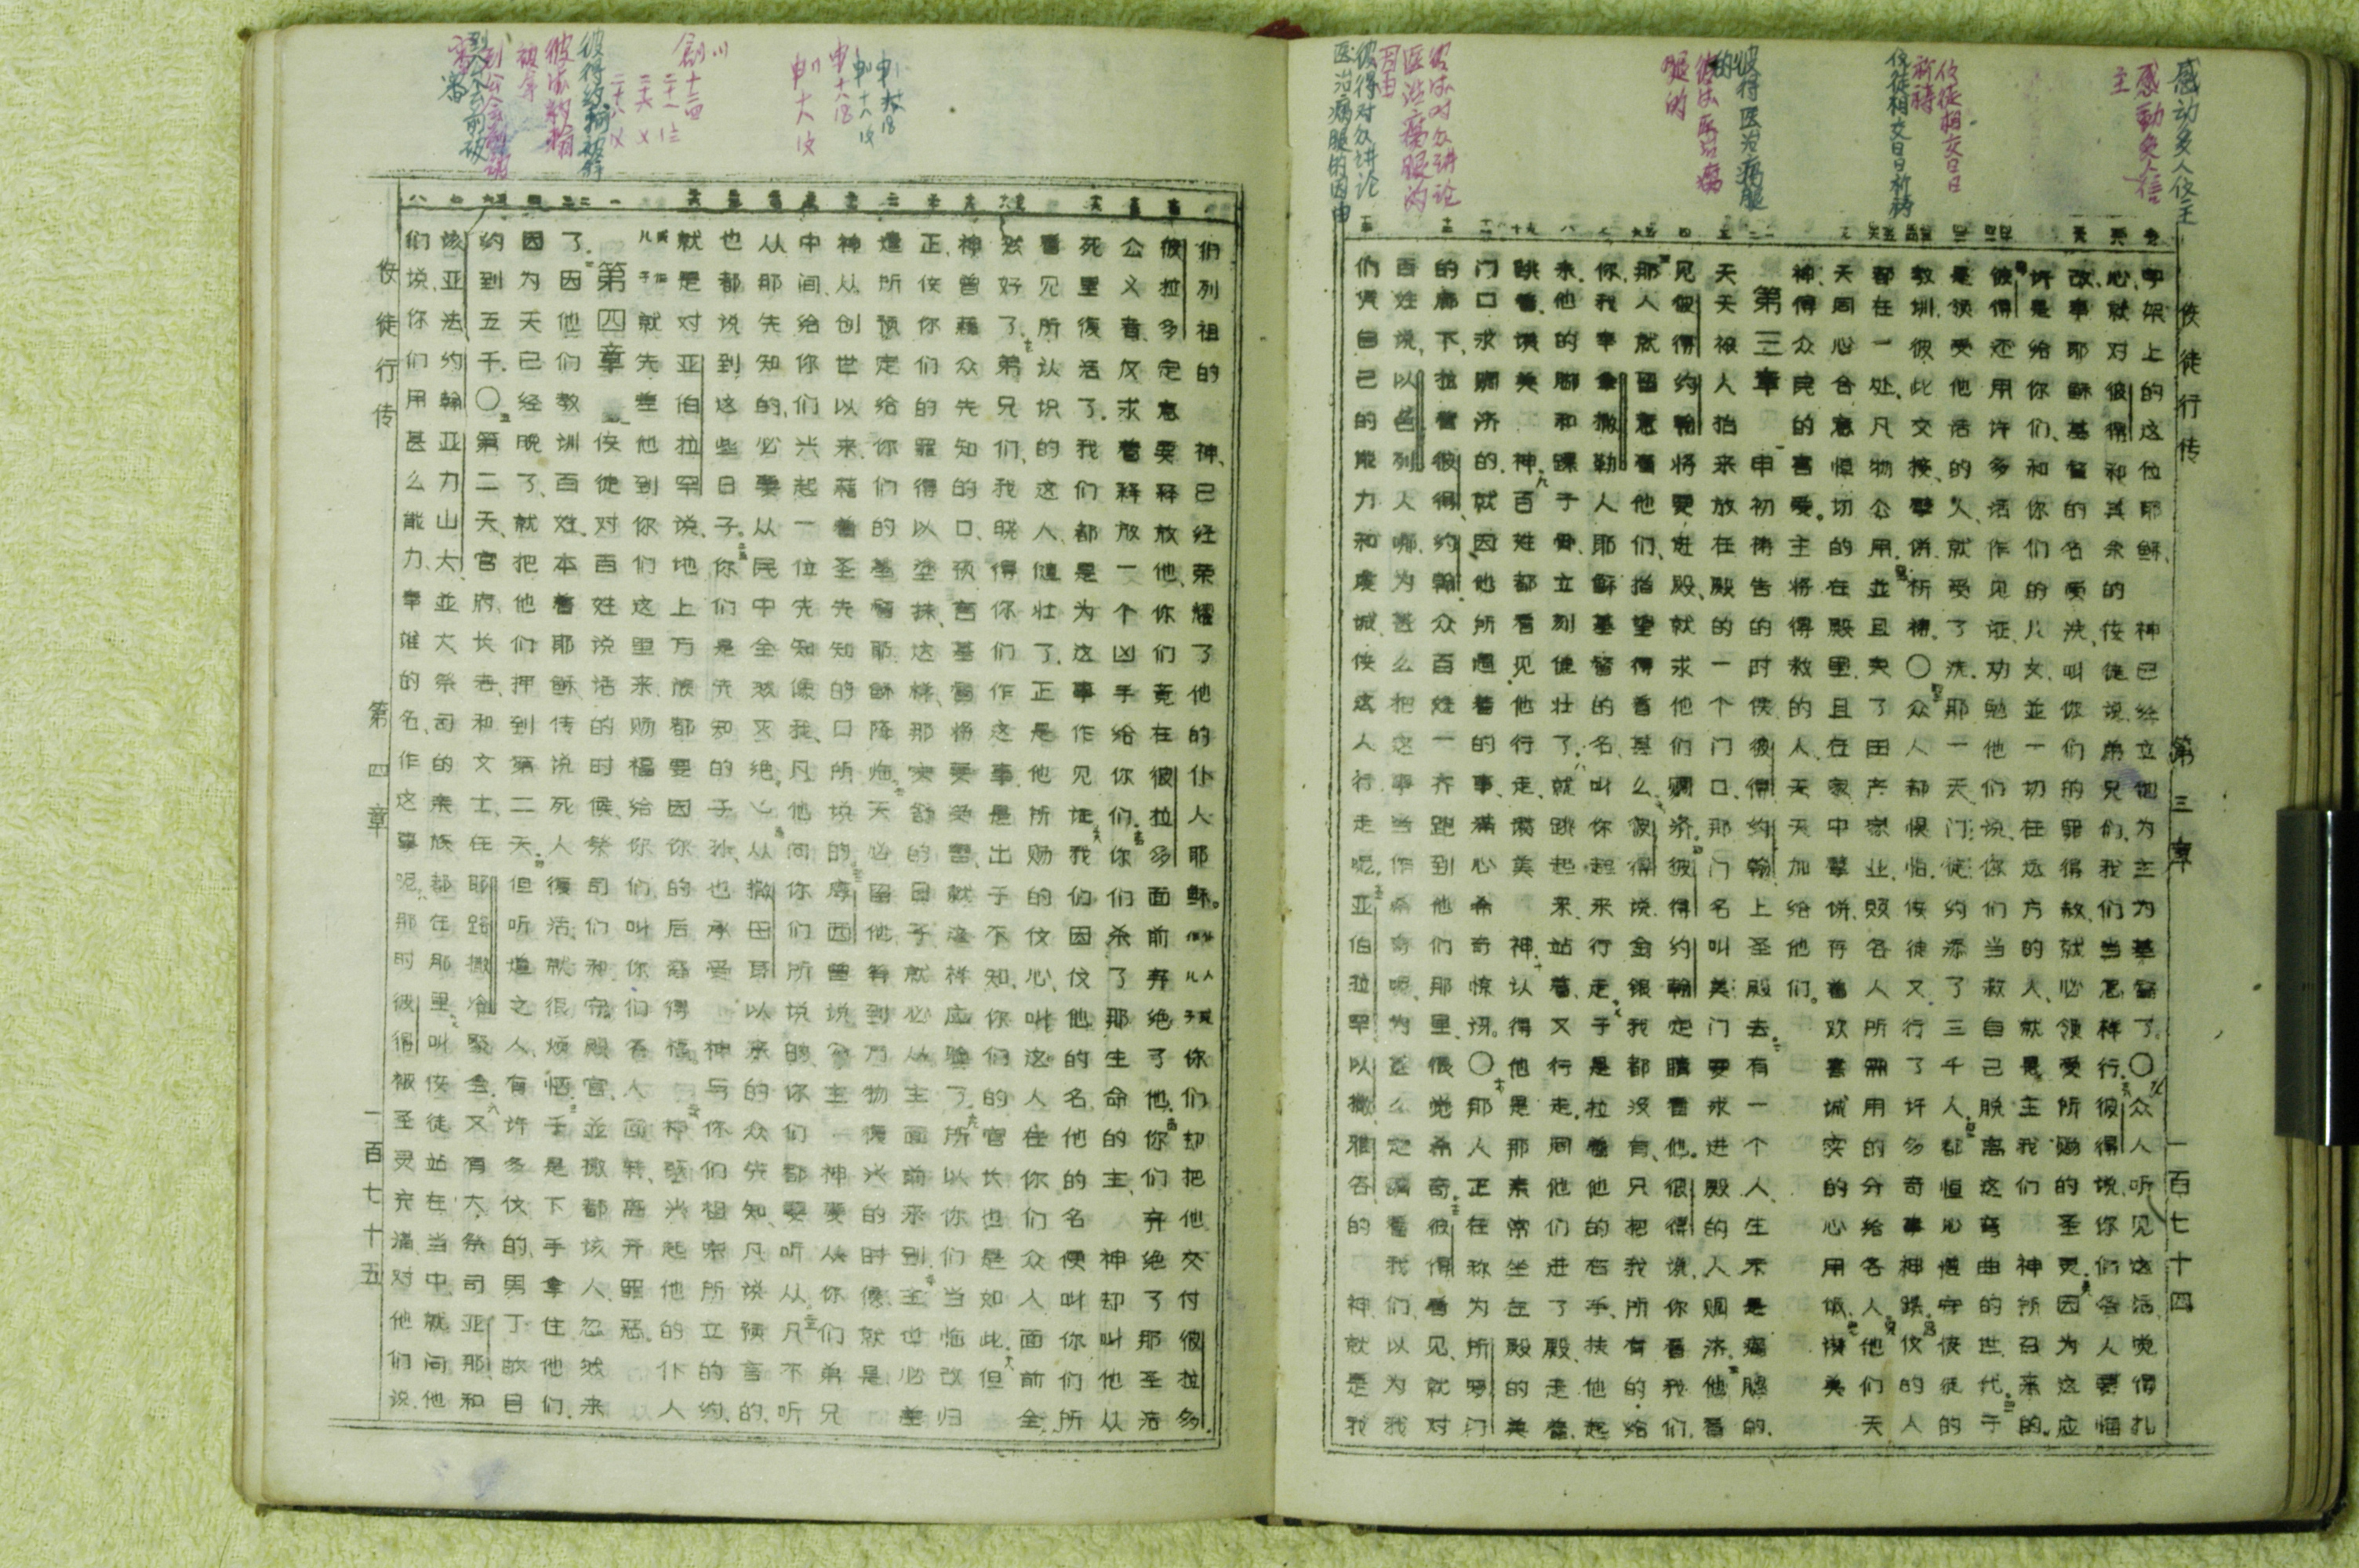 感动多人信主
感動多人信主
使徒相交日日祈祷
使徒相交日日祈祷
彼得医治瘸腿的
彼得医治瘸腿的
彼得对众讲论医治瘸腿的因由
彼得对众讲论医治瘸腿的因由
使徒行传 第三章 一百七十四
字架上的这位耶稣、神已经立他为主为基督了〇众人听见这话觉得扎
心、就对彼得和其余的使徒说、弟兄们、我们当怎样行、彼得说、你们各人要悔
改、奉耶稣基督的名受洗、叫你们的罪得赦、就必领受所赐的圣灵、因为这应
许是给你们、和你们的儿女、並一切在远方的人、就是主我们 神所召来的。
彼得还用许多话作见证、劝勉他们说、你们当救自己脱离这弯曲的世代、于
是领受他话的人、就受了洗、那一天、门徒约添了三千人、都恒心遵守使徒的
教训、彼此交接、擘饼、祈祷、〇众人都惧怕、使徒又行了许多奇事神蹟、信的人
都在一处、凡物公用、並且卖了田产家业、照各人所需用的分给各人、他们天
天同心合意恒切的在殿里、且在家中擘饼、存着欢喜诚实的心用饭、讚美
神、得众民的喜爱。主将得救的人、天天加给他们。
第三章 申初祷告的时候彼得约翰上圣殿去、有一个人、生来是瘸腿的、
天天被人抬来放在殿的一个门口、那门名叫美门、要求进殿的人賙济、他看
见彼得约翰将要进殿、就求他们賙济、彼得约翰定睛看他、彼得说、你看我们、
那人就留意看他们、指望得着甚么、彼得说、金银我都没有、只把我所有的给
你、我奉拿撒勒人耶稣基督的名、叫你起来行走、于是拉着他的右手、扶他起
来、他的脚和踝子骨、立刻健壮了、就跳起来、站着、又行走、同他们进了殿、走着、
跳着、讚美 神、百姓都看见他行走、讚美 神、认得他是那素常坐在殿的美
门口求賙济的、就因他所遇着的事、满心希奇惊讶。〇那人正在称为所罗门
的廊下、拉着彼得、约翰、众百姓一齐跑到他们那里、很觉希奇、彼得看见、就对
百姓说、以色列人哪、为甚么把这事当作希奇呢、为甚么定睛看我们、以为我
们凭自己的能力和虔诚、使这人行走呢、亚伯拉罕以撒雅各的 神、就是我
们列祖的 神、已经荣耀了他的仆人耶稣。你们却把他交付彼拉多、
彼拉多定意要释放他、你们竟在彼拉多面前弃绝了他、你们弃绝了那圣洁
公义者、反求着释放一个凶手给你们、你们杀了那生命的主、 神却叫他从
死里復活了、我们都是为这事作见证、我们因信他的名、他的名便叫你们所
看见所认识的这人、健壮了、正是他所赐的信心、叫这人在你们众人面前全
然好了、弟兄们、我晓得你们作这事、是出于不知、你们的官长也是如此、但
神曾藉众先知的口、预言基督将要受害、就这样应验了、所以你们当悔改归
正、使你们的罪得以塗抹、这样、那安舒的日子就必从主面前来到、主也必差
遣所预定给你们的基督耶稣降临、天必留他、等到万物復兴的时候、就是
神从创世以来、藉着圣先知的口所说的、摩西曾说、主 神要从你们弟兄
中间、给你们兴起一位先知像我、凡他向你们所说的、你们都要听从、凡不听
从那先知的、必要从民中全然灭绝、从撒母耳以来的众先知、凡说预言的、
也都说到这些日子、你们是先知的子孙、也承受 神与你们祖宗所立的约、
就是对亚伯拉罕说、地上万族、都要因你的后裔得福、神既兴起他的仆人
就先差他到你们这里来、赐福给你们、叫你们各人回转、离开罪恶。
第四章 使徒对百姓说话的时候、祭司们和守殿官、並撒都该人、忽然来
了、因他们教训百姓、本着耶稣传说死人復活、就很烦恼、于是下手拿住他们、
因为天已经晚了、就把他们押到第二天、但听道之人、有许多信的、男丁数目
约到五千〇第二天、官府长老和文士、在耶路撒冷聚会、又有大祭司亚那和
该亚法约翰亚力山大並大祭司的亲族都在那里、叫使徒站在当中、就问他
们说、你们用甚么能力、奉谁的名、作这事呢、那时彼得被圣灵充满、对他们说、
使徒行传 第四章 一百七十五